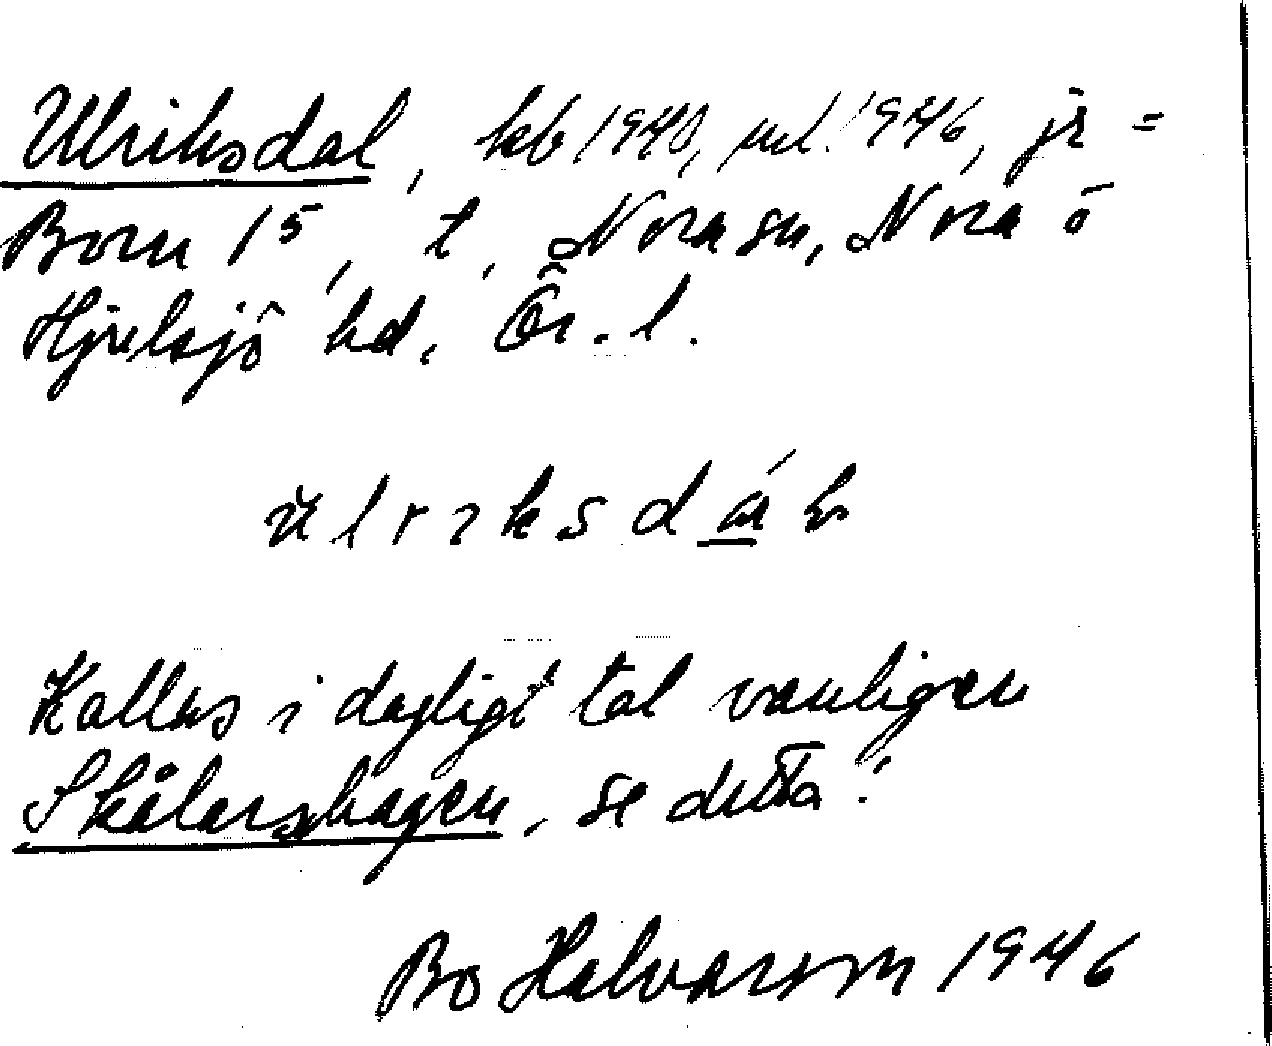 Ulriksdal, kb 1940, ml. 1946, jr =
Born 15, t. Nora sn, Nora o
Hjulsjö hd. Ör. l.
Kallas i dagligt tal vanligen
Skålarshagen, se detta!
Bo Halvarson 1946